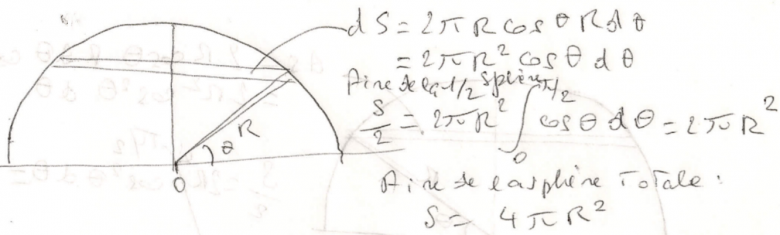 dS = 2πR cos θ R dθ
= 2πR² cos θ d θ
Aire de la 1/2 sphère
S/2 = 2πR² ∫₀^π/2 cos θ dθ = 2πR²
θ R
O
Aire de la sphère Totale :
S = 4πR²